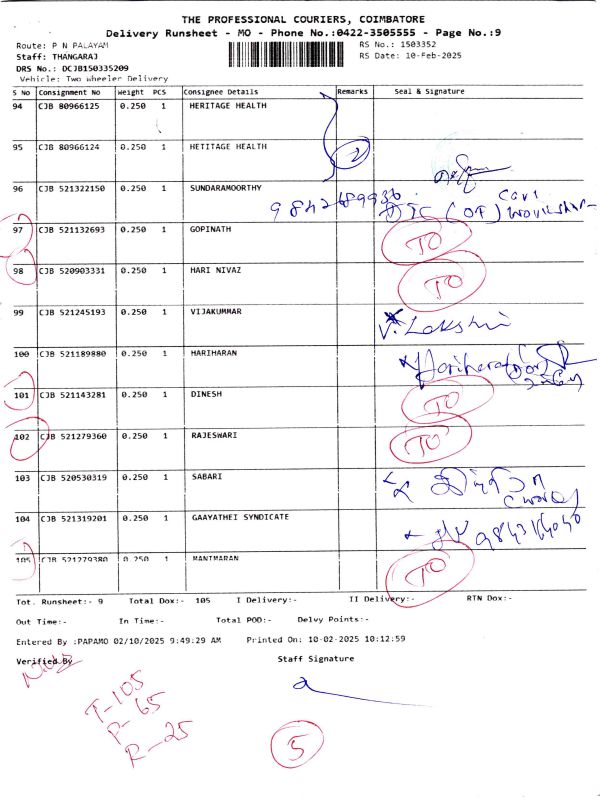 THE PROFESSIONAL COURIERS, COIMBATORE
Delivery Runsheet - MO - Phone No.:0422-3505555 - Page No.:9
Route: P N PALAYAM
RS No.: 1503352
Staff: THANGARAJ
RS Date: 10-Feb-2025
DRS No.: DCJB150335209
Vehicle: Two Wheeler Delivery
S No Consignment No Weight PCS Consignee Details Remarks Seal & Signature
94 CJB 80966125 0.250 1 HERITAGE HEALTH
95 CJB 80966124 0.250 1 HETITAGE HEALTH 2
96 CJB 521322150 0.250 1 SUNDARAMOORTHY
97 CJB 521132693 0.250 1 GOPINATH TO
98 CJB 520903331 0.250 1 HARI NIVAZ TO
99 CJB 521245193 0.250 1 VIJAKUMMAR V. Lakshmi
100 CJB 521189880 0.250 1 HARIHARAN Hariharan
101 CJB 521143281 0.250 1 DINESH TO
102 CJB 521279360 0.250 1 RAJESWARI TO
103 CJB 520530319 0.250 1 SABARI
104 CJB 521319201 0.250 1 GAAYATHEI SYNDICATE
105 CJB 521279380 0.250 1 MANIMARAN TO
Tot. Runsheet:- 9 Total Dox:- 105 I Delivery:- II Delivery:- RTN Dox:-
Out Time:- In Time:- Total POD:- Delvy Points:-
Entered By :PAPAMO 02/10/2025 9:49:29 AM Printed On: 10-02-2025 10:12:59
Verified By Staff Signature
T-105
P-65
R-25
5